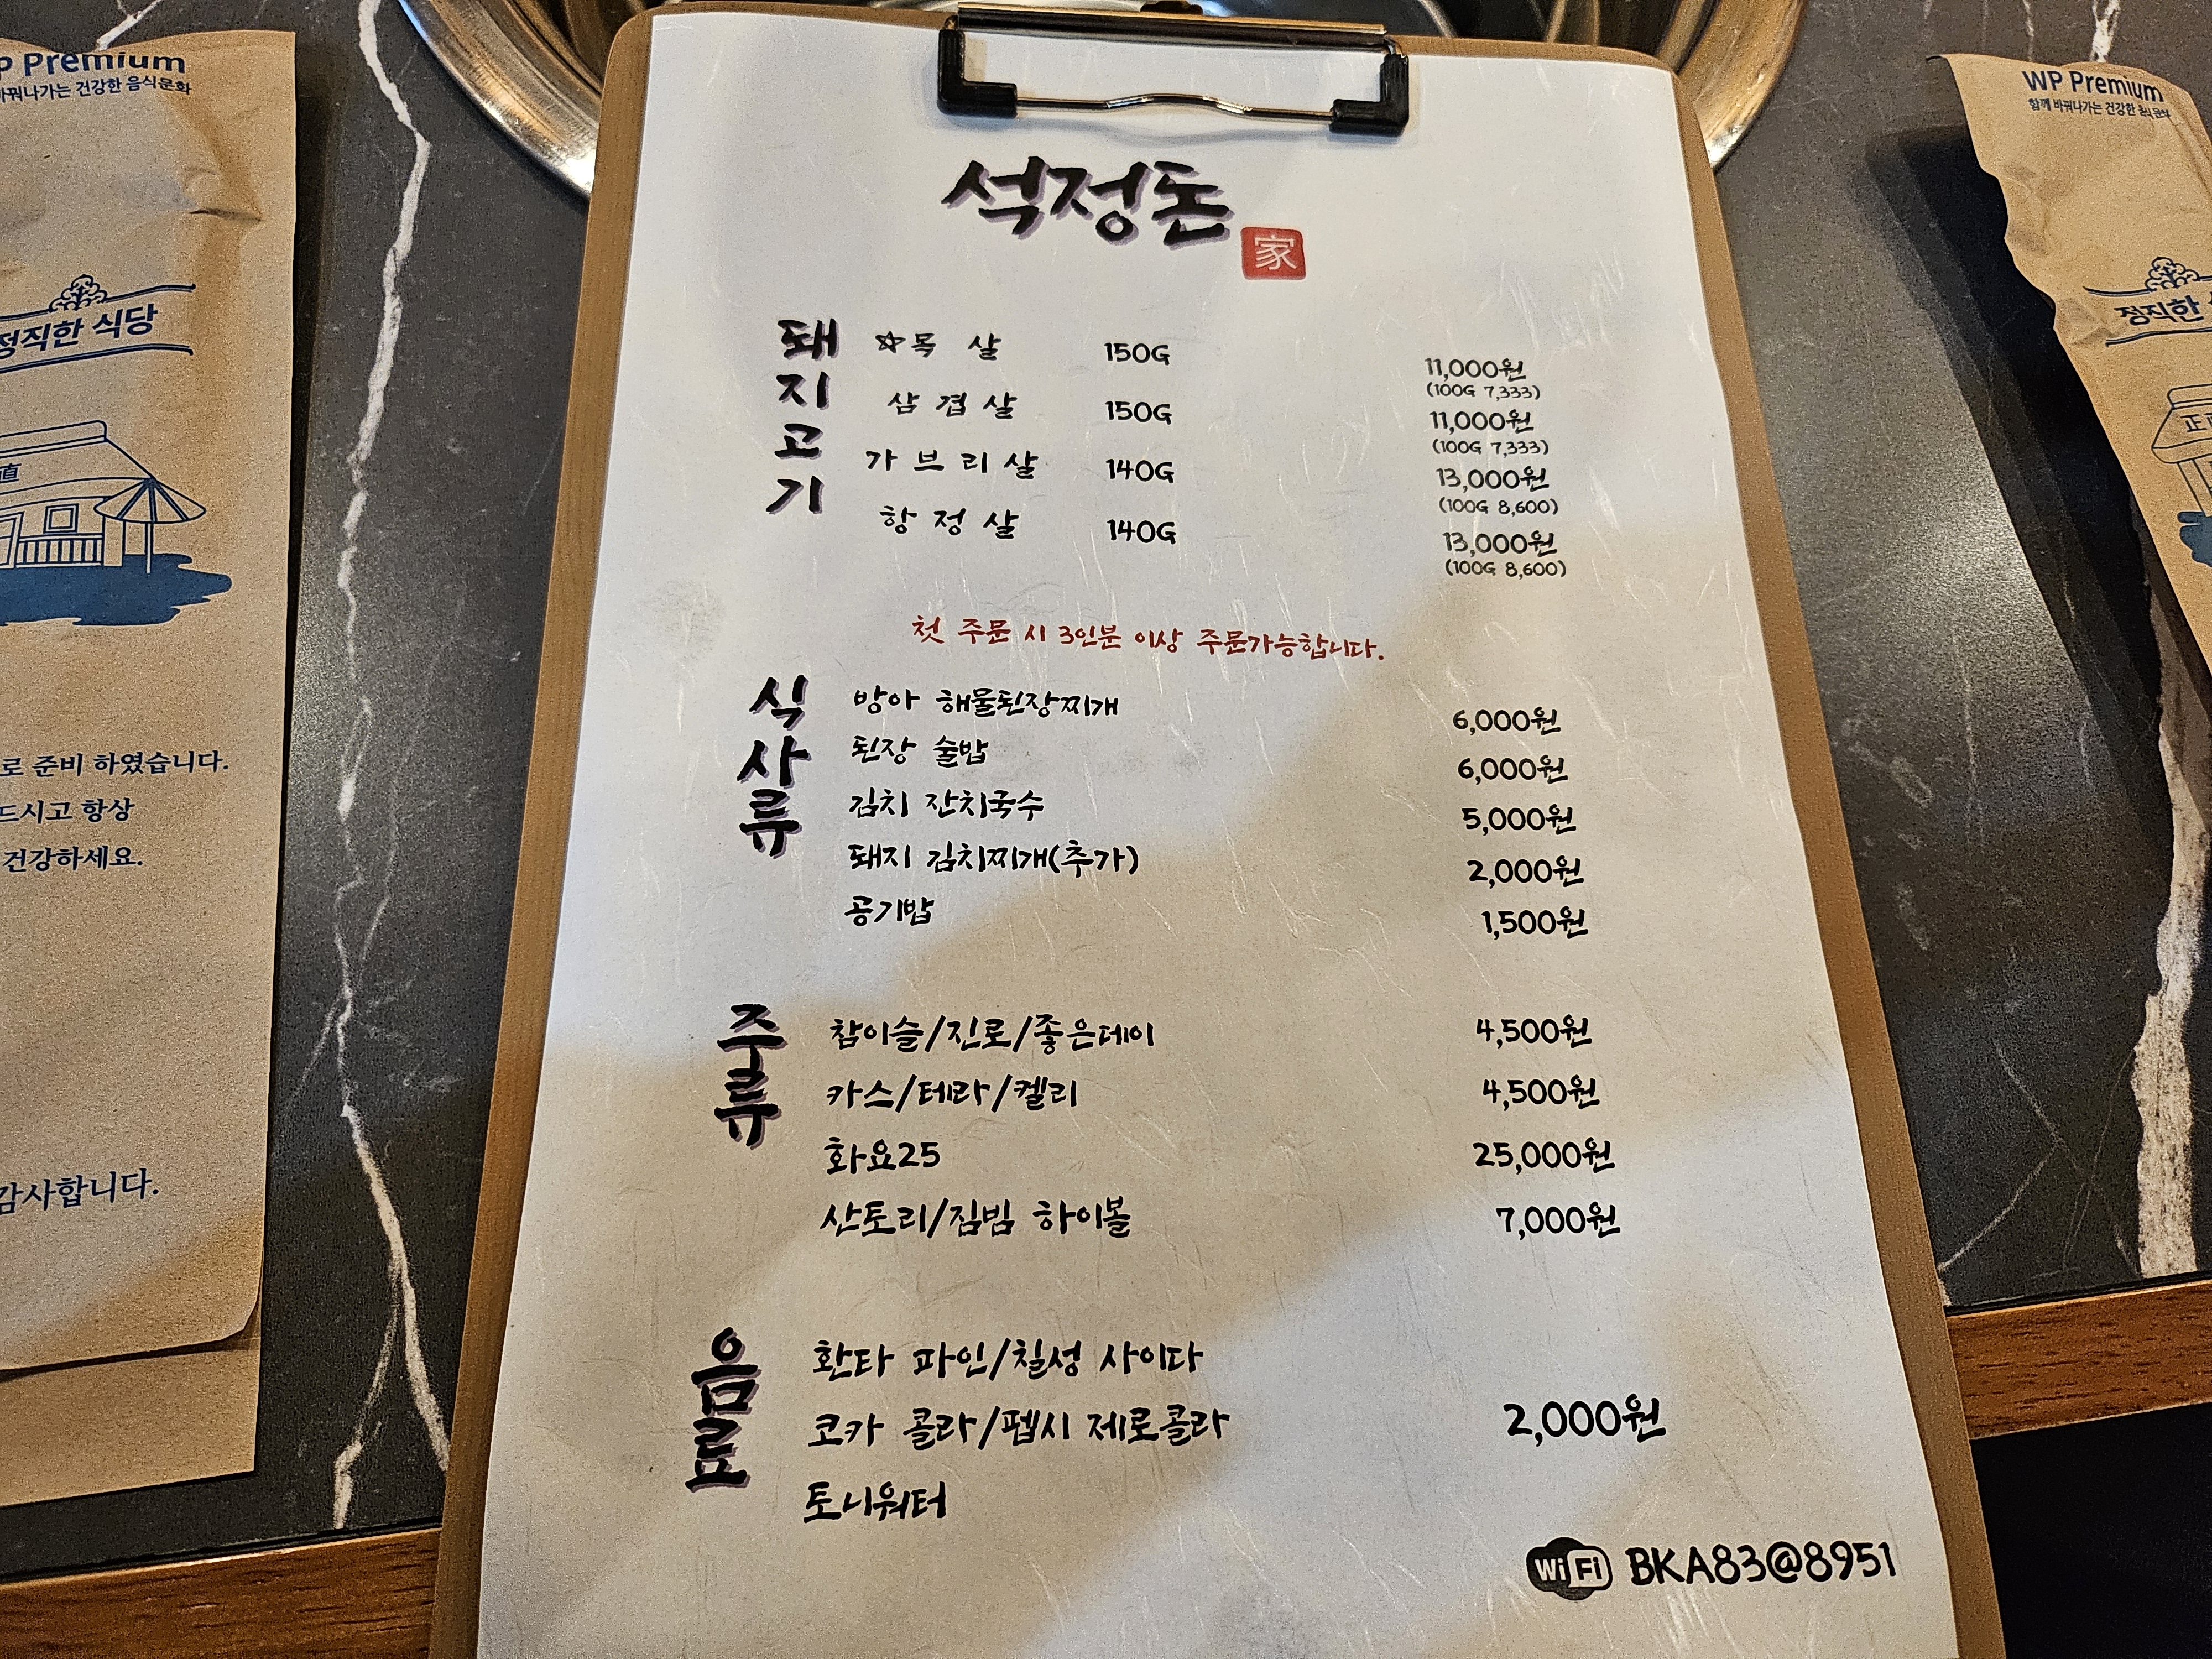 석정돈
家
돼지고기
☆목 살 150G 11,000원
(100G 7,333)
삼 겹 살 150G 11,000원
(100G 7,333)
가 브 리 살 140G 13,000원
(100G 8,600)
항 정 살 140G 13,000원
(100G 8,600)
첫 주문 시 3인분 이상 주문가능합니다.
식사류
방아 해물된장찌개 6,000원
된장 술밥 6,000원
김치 잔치국수 5,000원
돼지 김치찌개(추가) 2,000원
공기밥 1,500원
주류
참이슬/진로/좋은데이 4,500원
카스/테라/켈리 4,500원
화요25 25,000원
산토리/짐빔 하이볼 7,000원
음료
환타 파인/칠성 사이다
코카 콜라/펩시 제로콜라 2,000원
토니워터
WiFi BKA83@8951
P Premium
바꿔나가는 건강한 음식문화
정직한 식당
直
로 준비 하였습니다.
드시고 항상
건강하세요.
감사합니다.
WP Premium
함께 바꿔나가는 건강한 음식문화
정직한
正